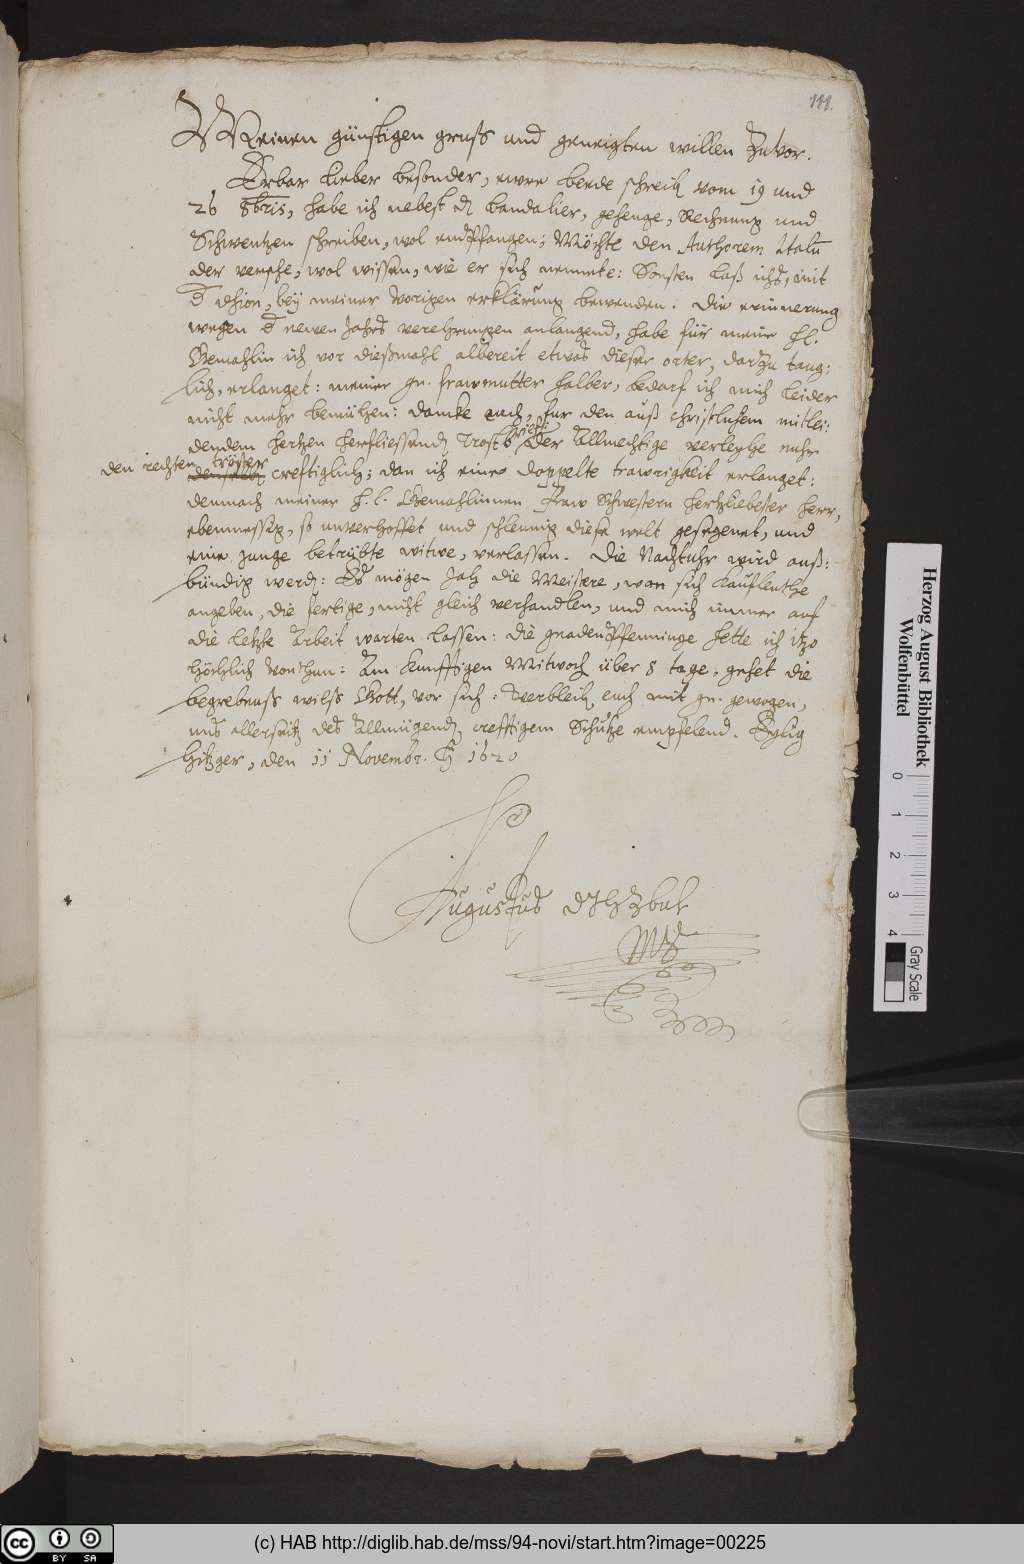 111.
Meinen günstigen gruß und geneigten willen zuvor.
Erbar lieber besonder, ewre beede schreib vom 19 und
26 8bris, habe ich nebest bandalier, gehenge, Rechnung und
Schwentzen schreiben, wol endpfangen; Möchte den Authorem
der verse, wol wissen, wie er sich nennete: Sonsten laß ichs, mit
bey meiner vorigen erklärung bewenden. Die erinnerung
wegen newen Jahrs verehrungen anlangend, habe für meine
Gemahlin ich vor dießmahl albereit etwas dieser orter, darzu taug:
lich, erlanget: meiner gn. frawmutter halber, bedarf ich mich leider
nicht mehr bemühen: dancke euch, für den auß christlichem mitlei:
dendem hertzen herfliessend Trost: der Allmechtige verleyhe mehr
den rechten tröster
creftiglich; dan ich eine doppelte trawrigkeit erlanget:
demnach meiner h. l. Gemahlinnen Fraw Schwestern hertzliebester herr,
ebenmessig, so unverhoffet und schleunig diese welt gesegenet, und
eine junge betrübte witwe, verlassen. Die Nachtuhr wird auß:
bündig werd: Es mögen die Meistere, wan sich kaufleuthe
angeben, die fertige, nicht gleich verhandlen, und mich immer auf
die letzte Arbeit warten lassen: die gnadenpfenninge hette ich itzo
höchlich von thun: Am künfftigen Mitwoch über 8 tage, gehet die
begrebnuß wils Gott, vor sich: Verbleib euch mit gn. gewogen,
uns allerseits des Allmügend crefftigem Schutze empfelend. Eylig
Hitzger, den 11 Novembr. 1620
Augustus
Herzog August Bibliothek
Wolfenbüttel
0 1 2 3 4
Gray Scale
cc BY SA
(c) HAB http://diglib.hab.de/mss/94-novi/start.htm?image=00225